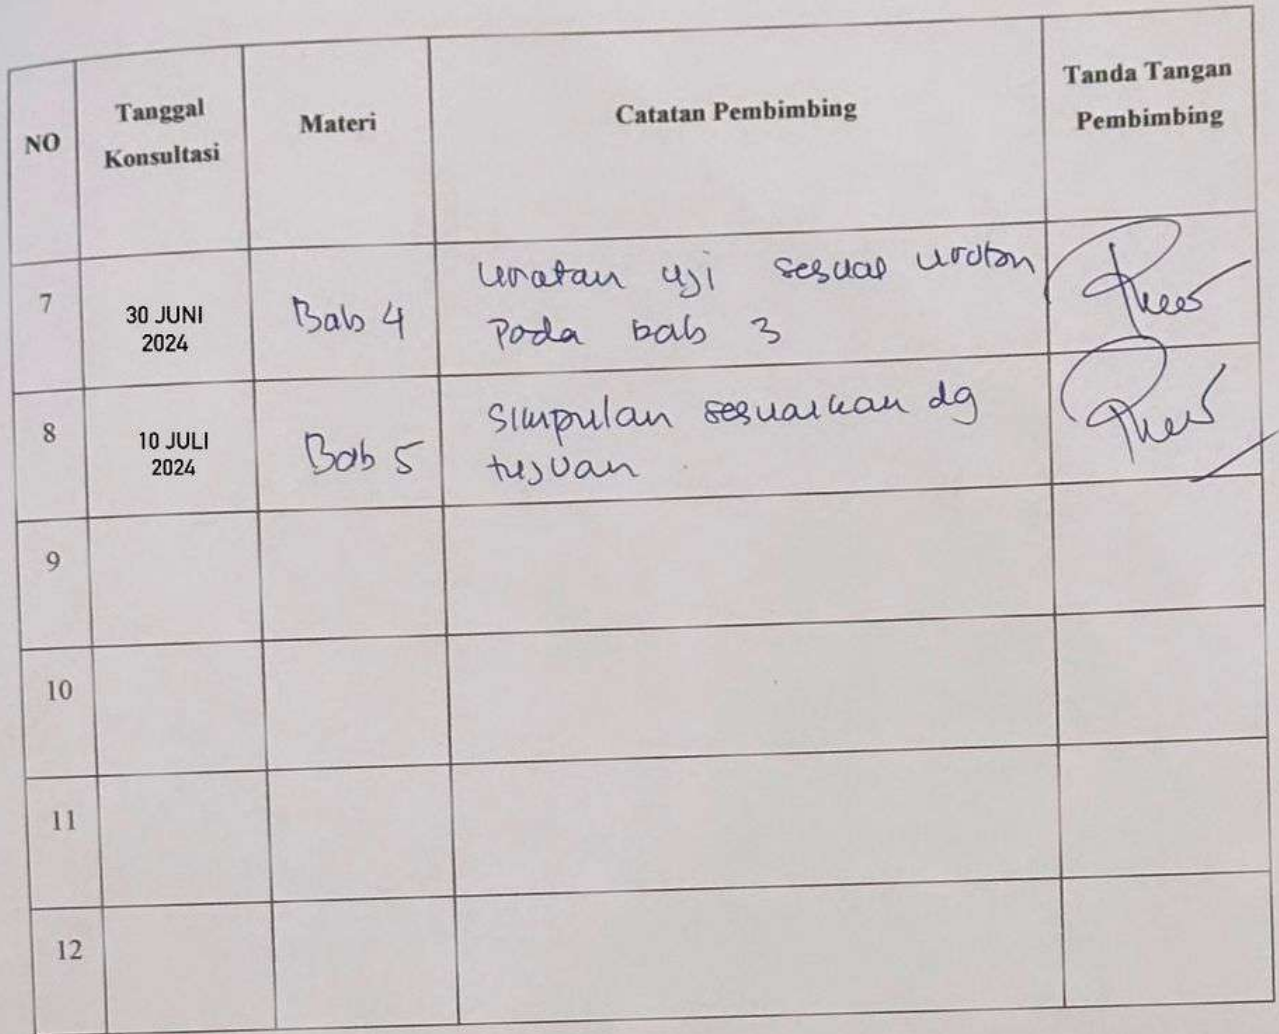 NO
Tanggal
Konsultasi
Materi
Catatan Pembimbing
Tanda Tangan
Pembimbing
7
30 JUNI
2024
Bab 4
Uratan uji sesuai uratan
Pada bab 3
8
10 JULI
2024
Bab 5
Simpulan sesuaikan dg
tujuan
9
10
11
12